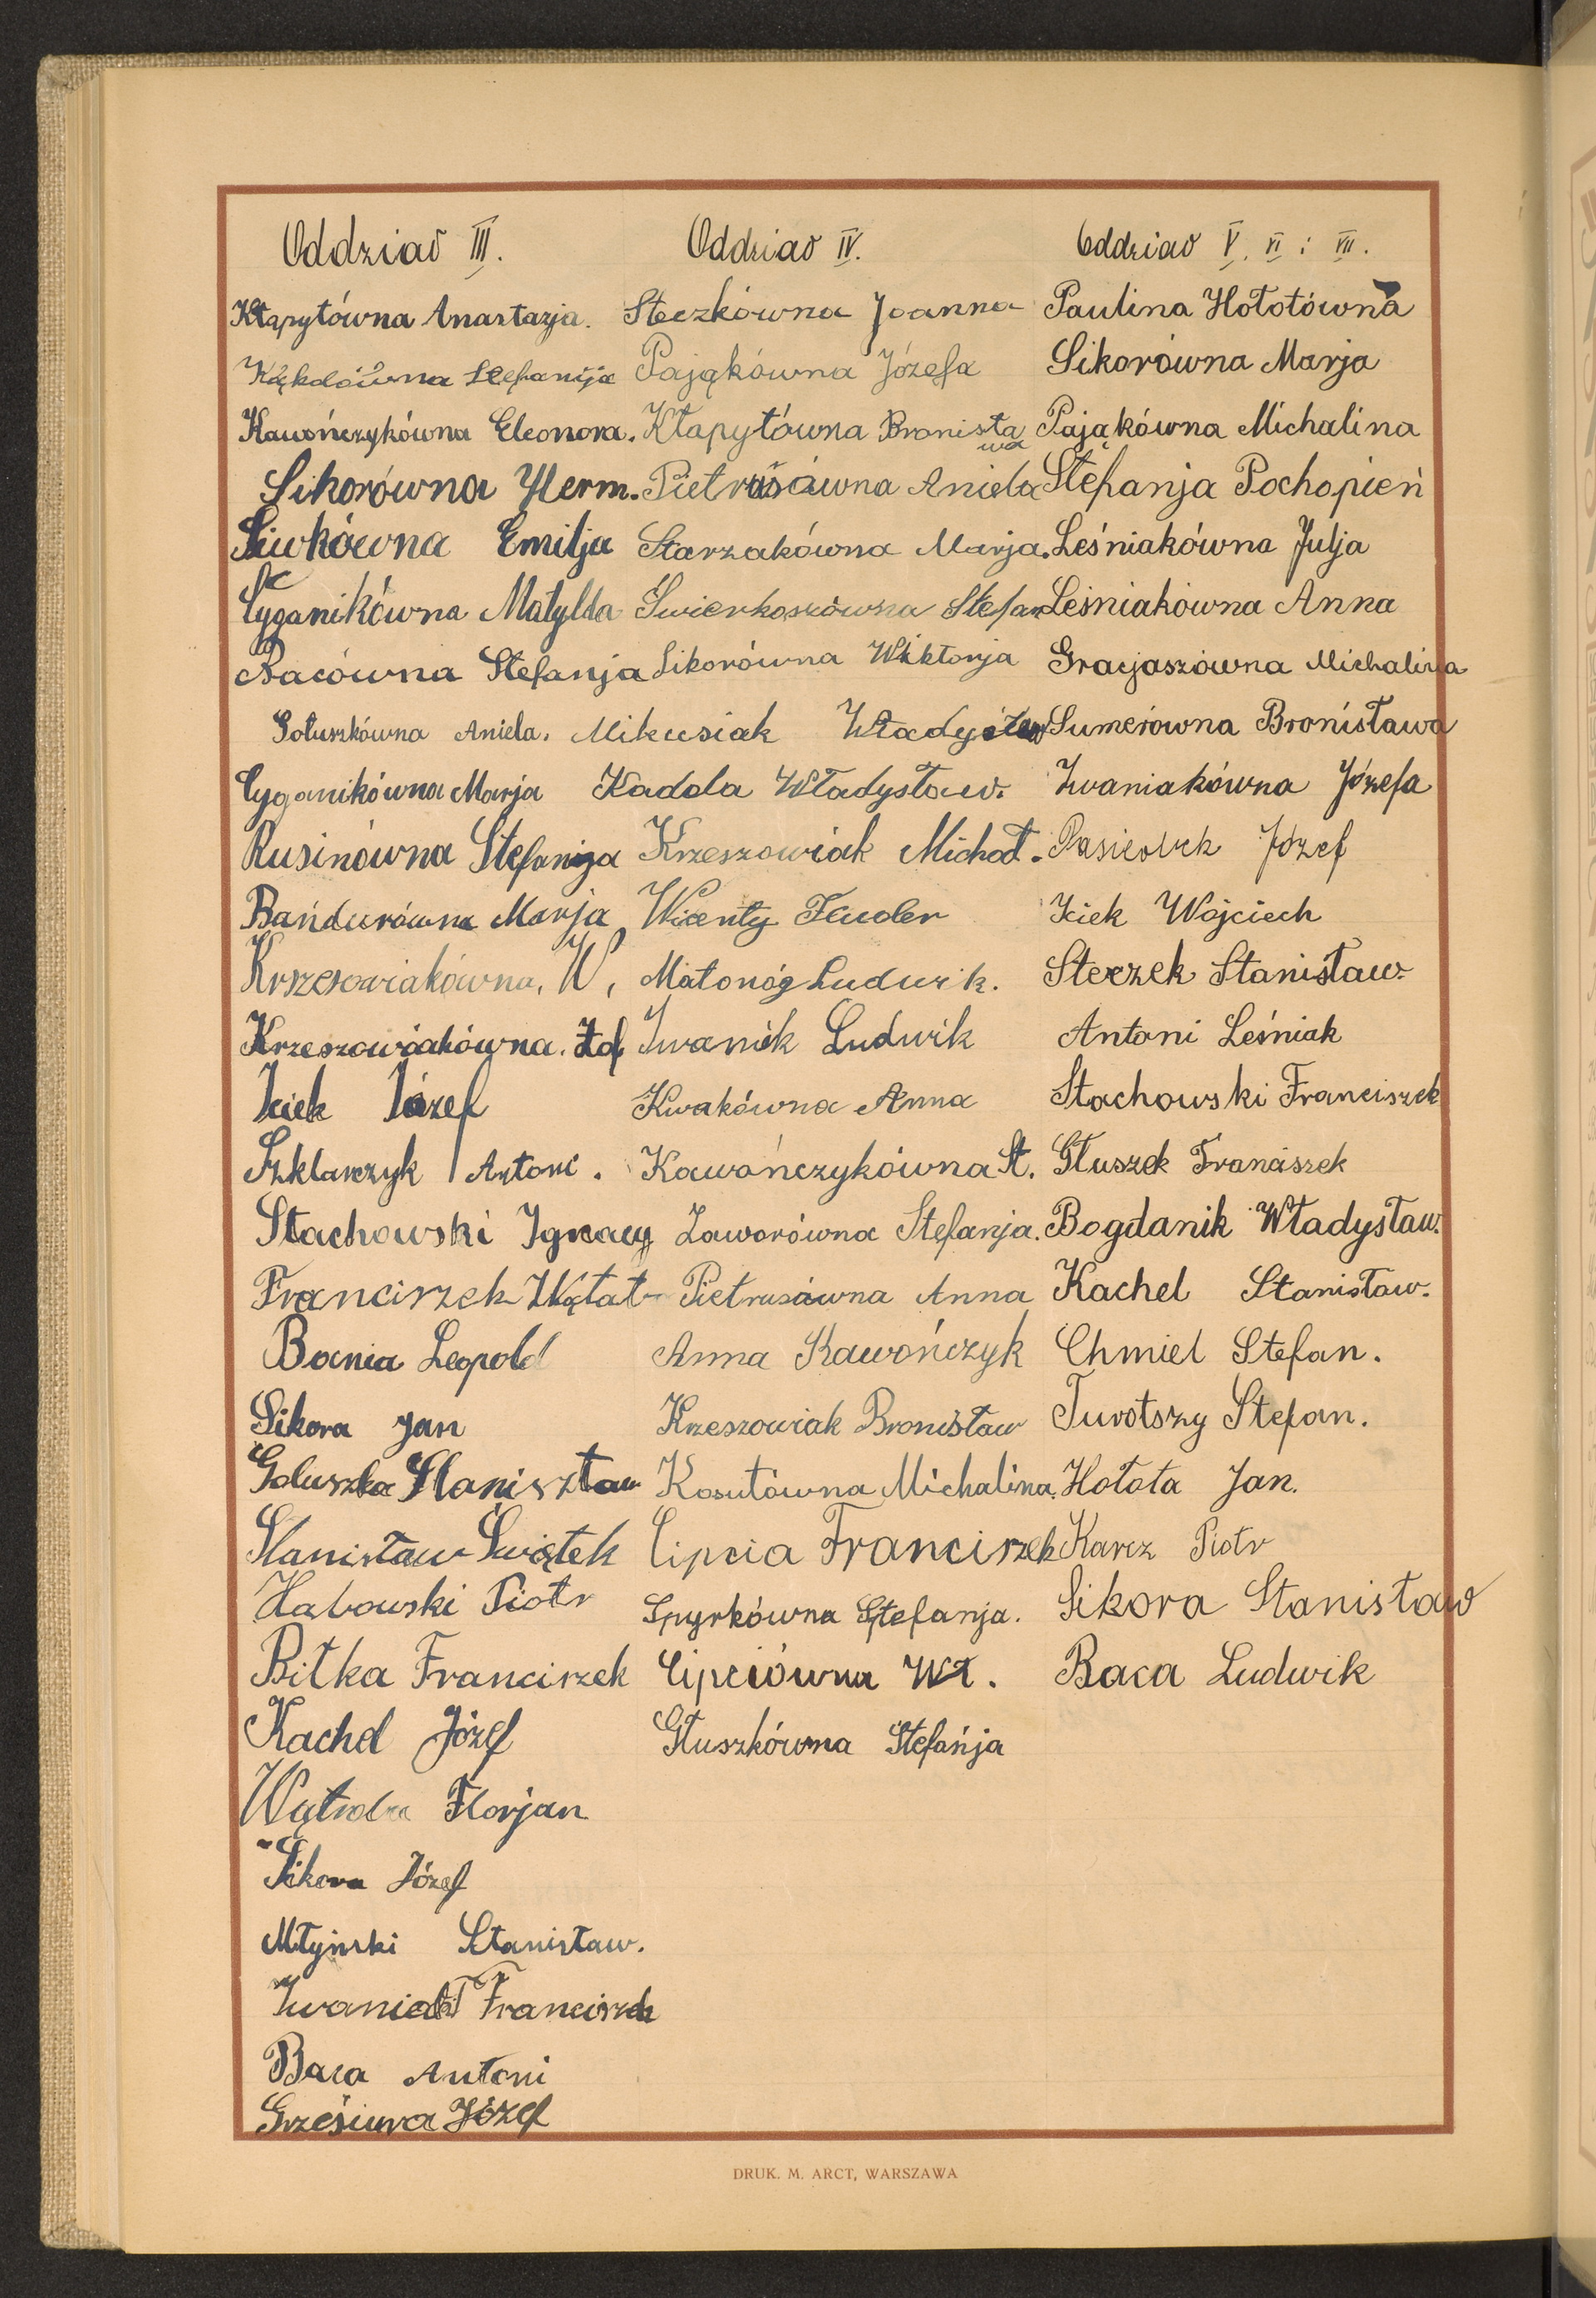 Oddział III.
Kłapytówna Anastazja.
Kąkolówna Stefanija
Kawończykówna Eleonora.
Sikorówna Herm.
Siwkówna Emilja
Cyganikówna Matylda
Bacówna Stefanja
Gołuszkówna Aniela.
Cyganikówna Marja
Rusinówna Stefanija
Bańdurówna Marja
Krszesowiakówna, W,
Krzeszowiakówna. Zof.
Iciek Józef
Szklarczyk Antoni.
Stachowski Ignacy
Franciszek
Bania Leopold
Sikora Jan
Gołuszka Staniszław
Stanisław Świątek
Habowski Piotr
Bitka Franciszek
Kachel Józef
Wątroba Florjan
Sikora Józef
Młyński Stanisław.
Iwaniak Franciszek
Baca Antoni
Józef
Oddział IV.
Steczkówna Joanna
Pająkówna Józefa
Kłapytówna Bronisła
wa
Pietrusówna Aniela
Starzakówna Marja.
Świerkoszówna Stefan
Sikorówna Wiktorja
Mikusiak Władysław
Kadela Władysław.
Krzeszowiak Michał.
Wicenty Feudler
Małonóg Ludwik.
Iwaniak Ludwik
Kwakówna Anna
Kawończykówna St.
Zaworówna Stefanja.
Pietrusówna Anna
Anna Kawończyk
Krzeszowiak Bronisław
Kosutówna Michalina.
Cipcia Franciszek
Spyrkówna Stefanja.
Cipciówna Wł.
Głuszkówna Stefańja
Oddział V. VI i VII.
Paulina Hołotówna
Sikorówna Marja
Pająkówna Michalina
Stefanja Pochopień
Leśniakówna Julja
Leśniakówna Anna
Gracjaszówna Michalina
Sumerówna Bronisława
Iwaniakówna Józefa
Pasiołek Józef
Iciek Wojciech
Steczek Stanisław
Antoni Leśniak
Stachowski Franciszek
Głuszek Franciszek
Bogdanik Władysław.
Kachel Stanisław.
Chmiel Stefan.
Stefan.
Hołota Jan.
Karcz Piotr
Sikora Stanisław
Baca Ludwik
DRUK. M. ARCT, WARSZAWA